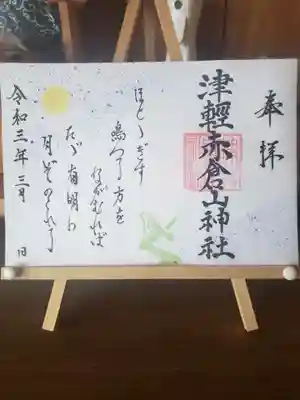 奉拝
津軽赤倉山神社
ほとゝぎす
鳴つる方を
ながむれば
たゞ有明の
月ぞのこれる
令和三年三月 日